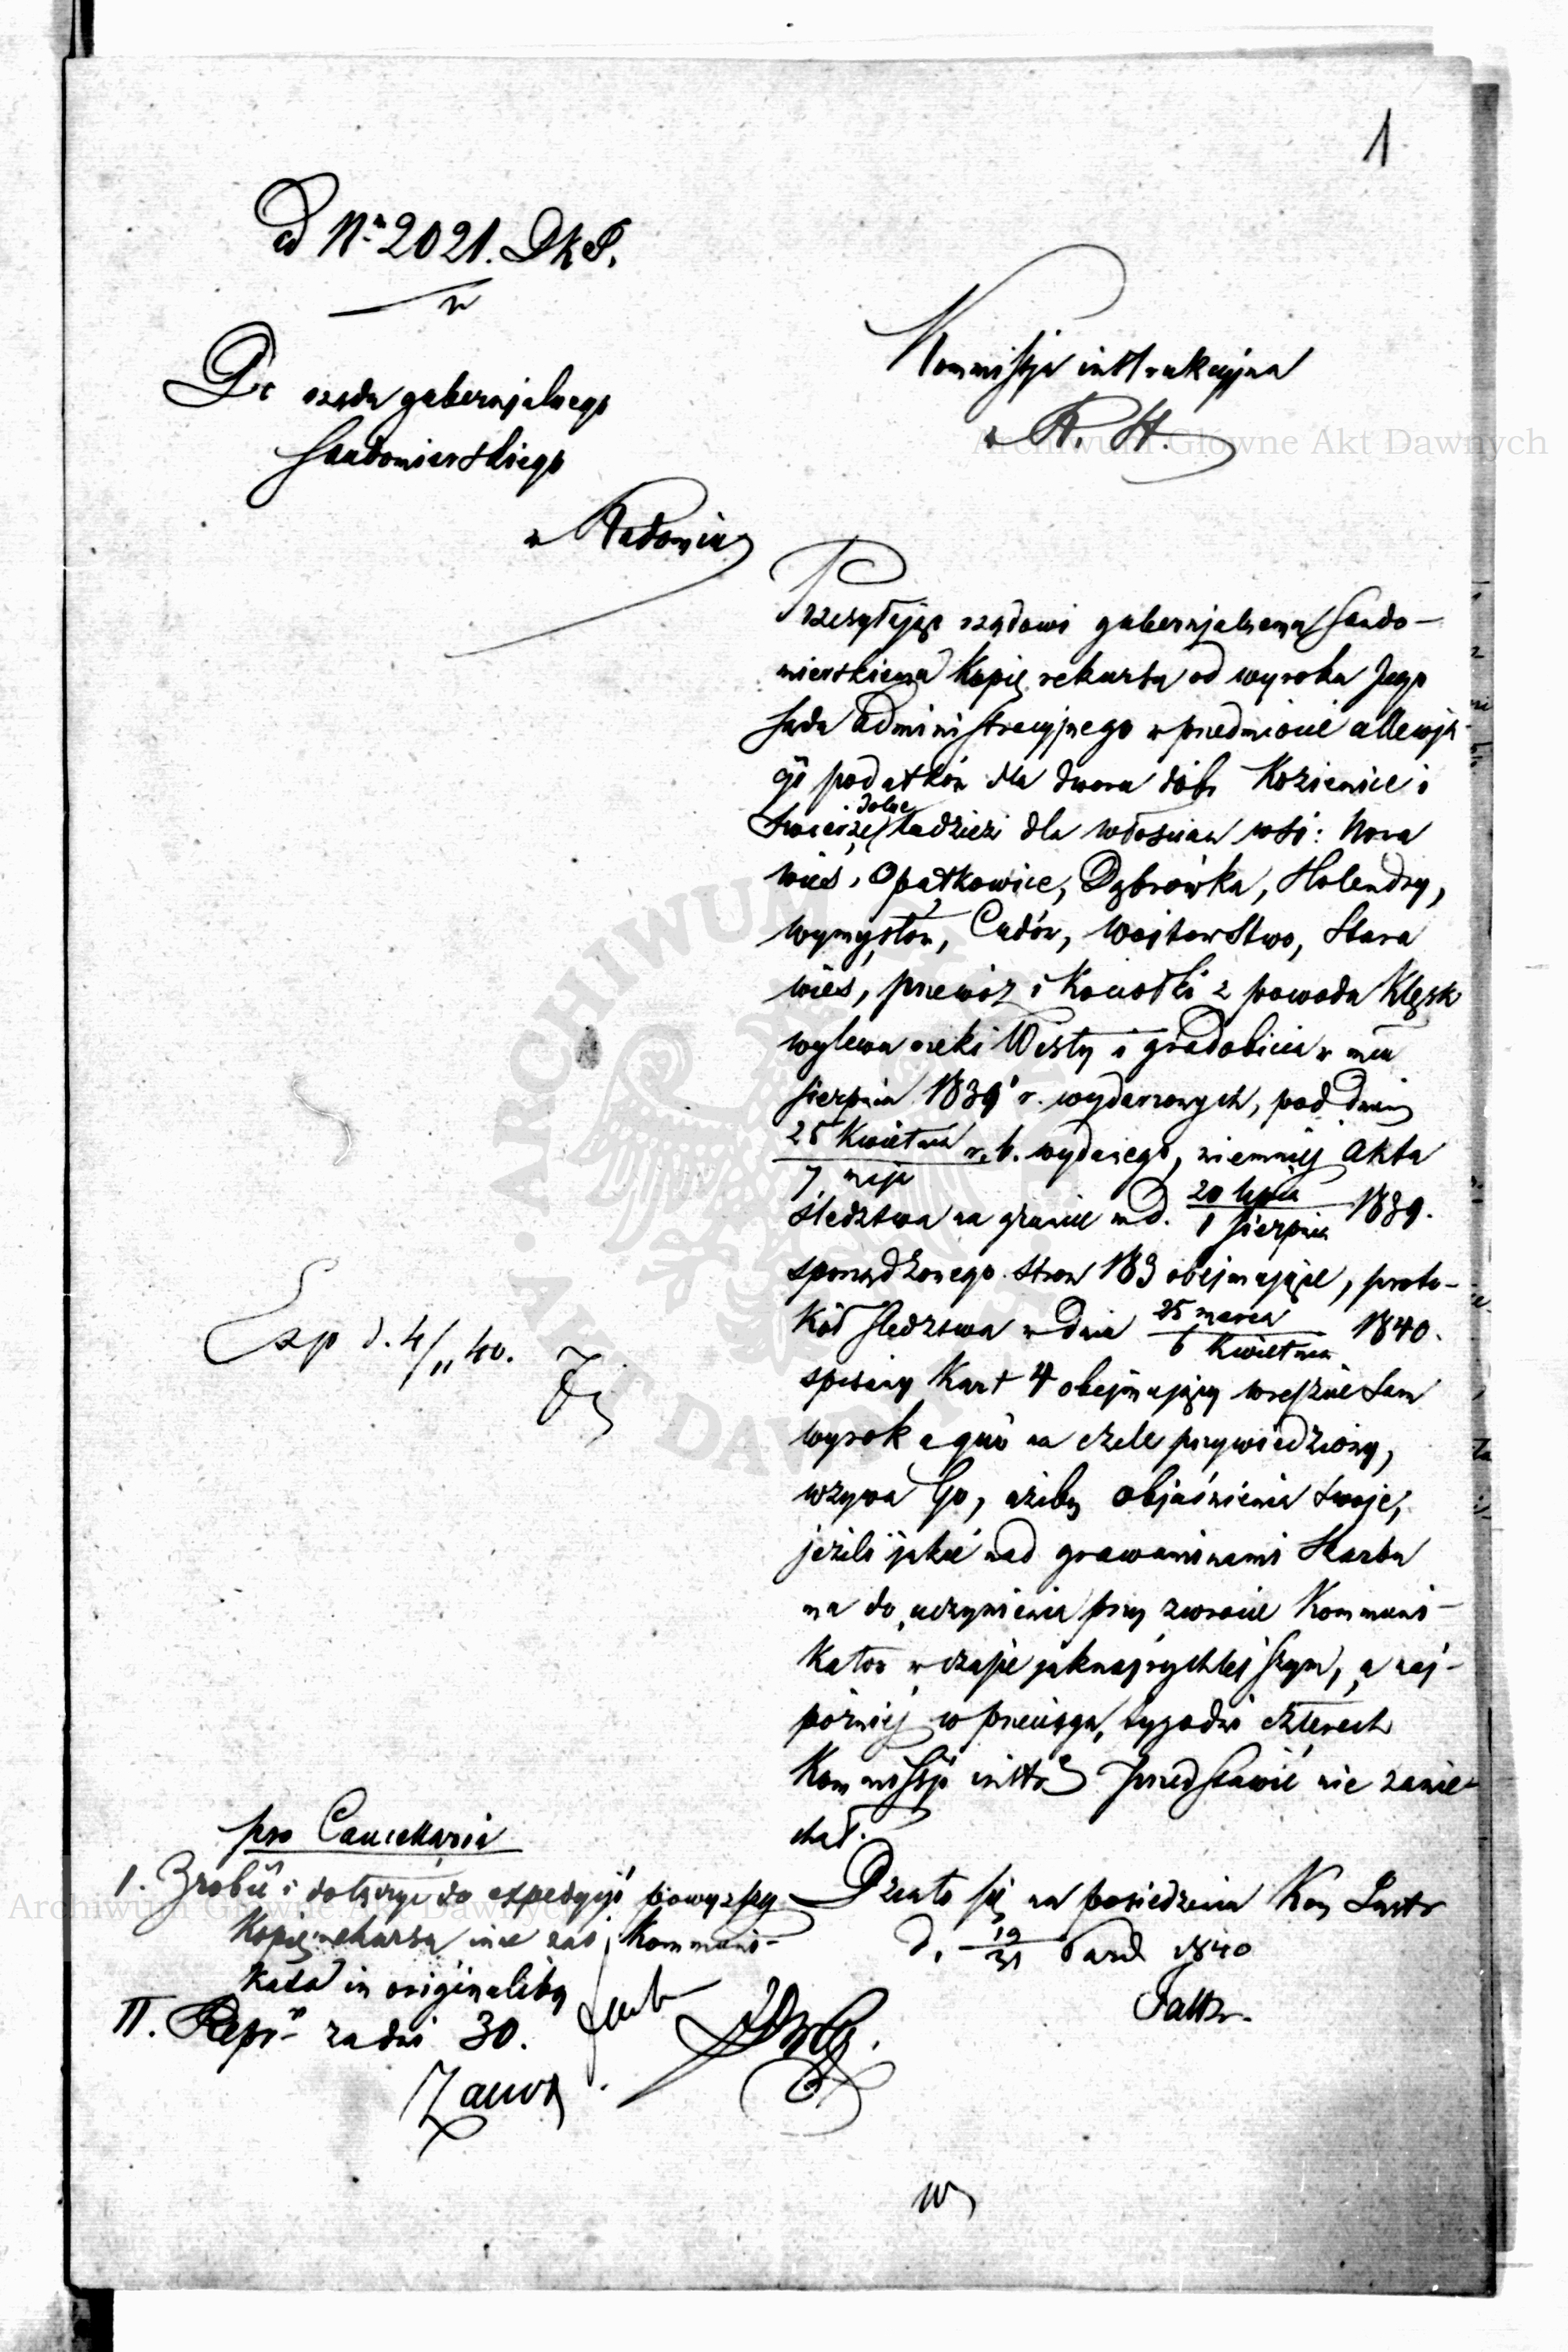 1
ad Nr 2021. DKP.
Do rządu gubernjalnego
Sandomierskiego
w Radomiu
Kommissja instrukcyjna
R. St.
Przesyłając rządowi gubernjalnemu Sando-
mierskiemu Kopię rekursu od wyroku Jego
Sądu administracyjnego w przedmiocie allewja-
cji podatków dla dworu dóbr Kozienice i
dolne
Świerże, tudzież dla włościan wsi: Nowa
wieś, Opatkowice, Dąbrówka, Holendry,
wymysłów, Cudów, Wojtowstwo, Stara
wieś, przewóz i Kociołki z powodu Klęsk
wylewu rzeki Wisły i gradobicia w mcu
sierpniu 1839 r. wydarzonych, pod dniem
25 Kwietnia
7 maja
r. b. wydanego, niemniej Akta
śledztwa na gruncie w d. 20 lipca
1 sierpnia
1839.
sporządzonego stron 183 obejmujące, proto-
kół śledztwa w dniu 25 marca
6 Kwietnia
1840.
spisany Kart 4 obejmujący wreszcie sam
wyrok a quo na czele przywiedziony,
wzywa Go, ażeby objaśnienia swoje,
jeżeli jakie nad grawaminami Skarbu
ma do uczynienia przy zwrocie Kommuni-
katów w czasie jaknajrychlejszym, a naj-
później w przeciągu tygodni czterech
Kommissji instr. przedstawić nie zanie-
chał.
Działo się na posiedzeniu Kom Instr
d. 19
31
Paźd 1840
Exp d. 4/11 40.
pro Cancellaria
I. Zrobić i dołączyć do expedycji powyższej
Kopię rekursu inne zaś Kommuni-
kata in originalibus
II. Repr. za dni 30.
Archiwum Główne Akt Dawnych
Archiwum Główne Akt Dawnych
ARCHIWUM GŁÓWNE AKT DAWNYCH